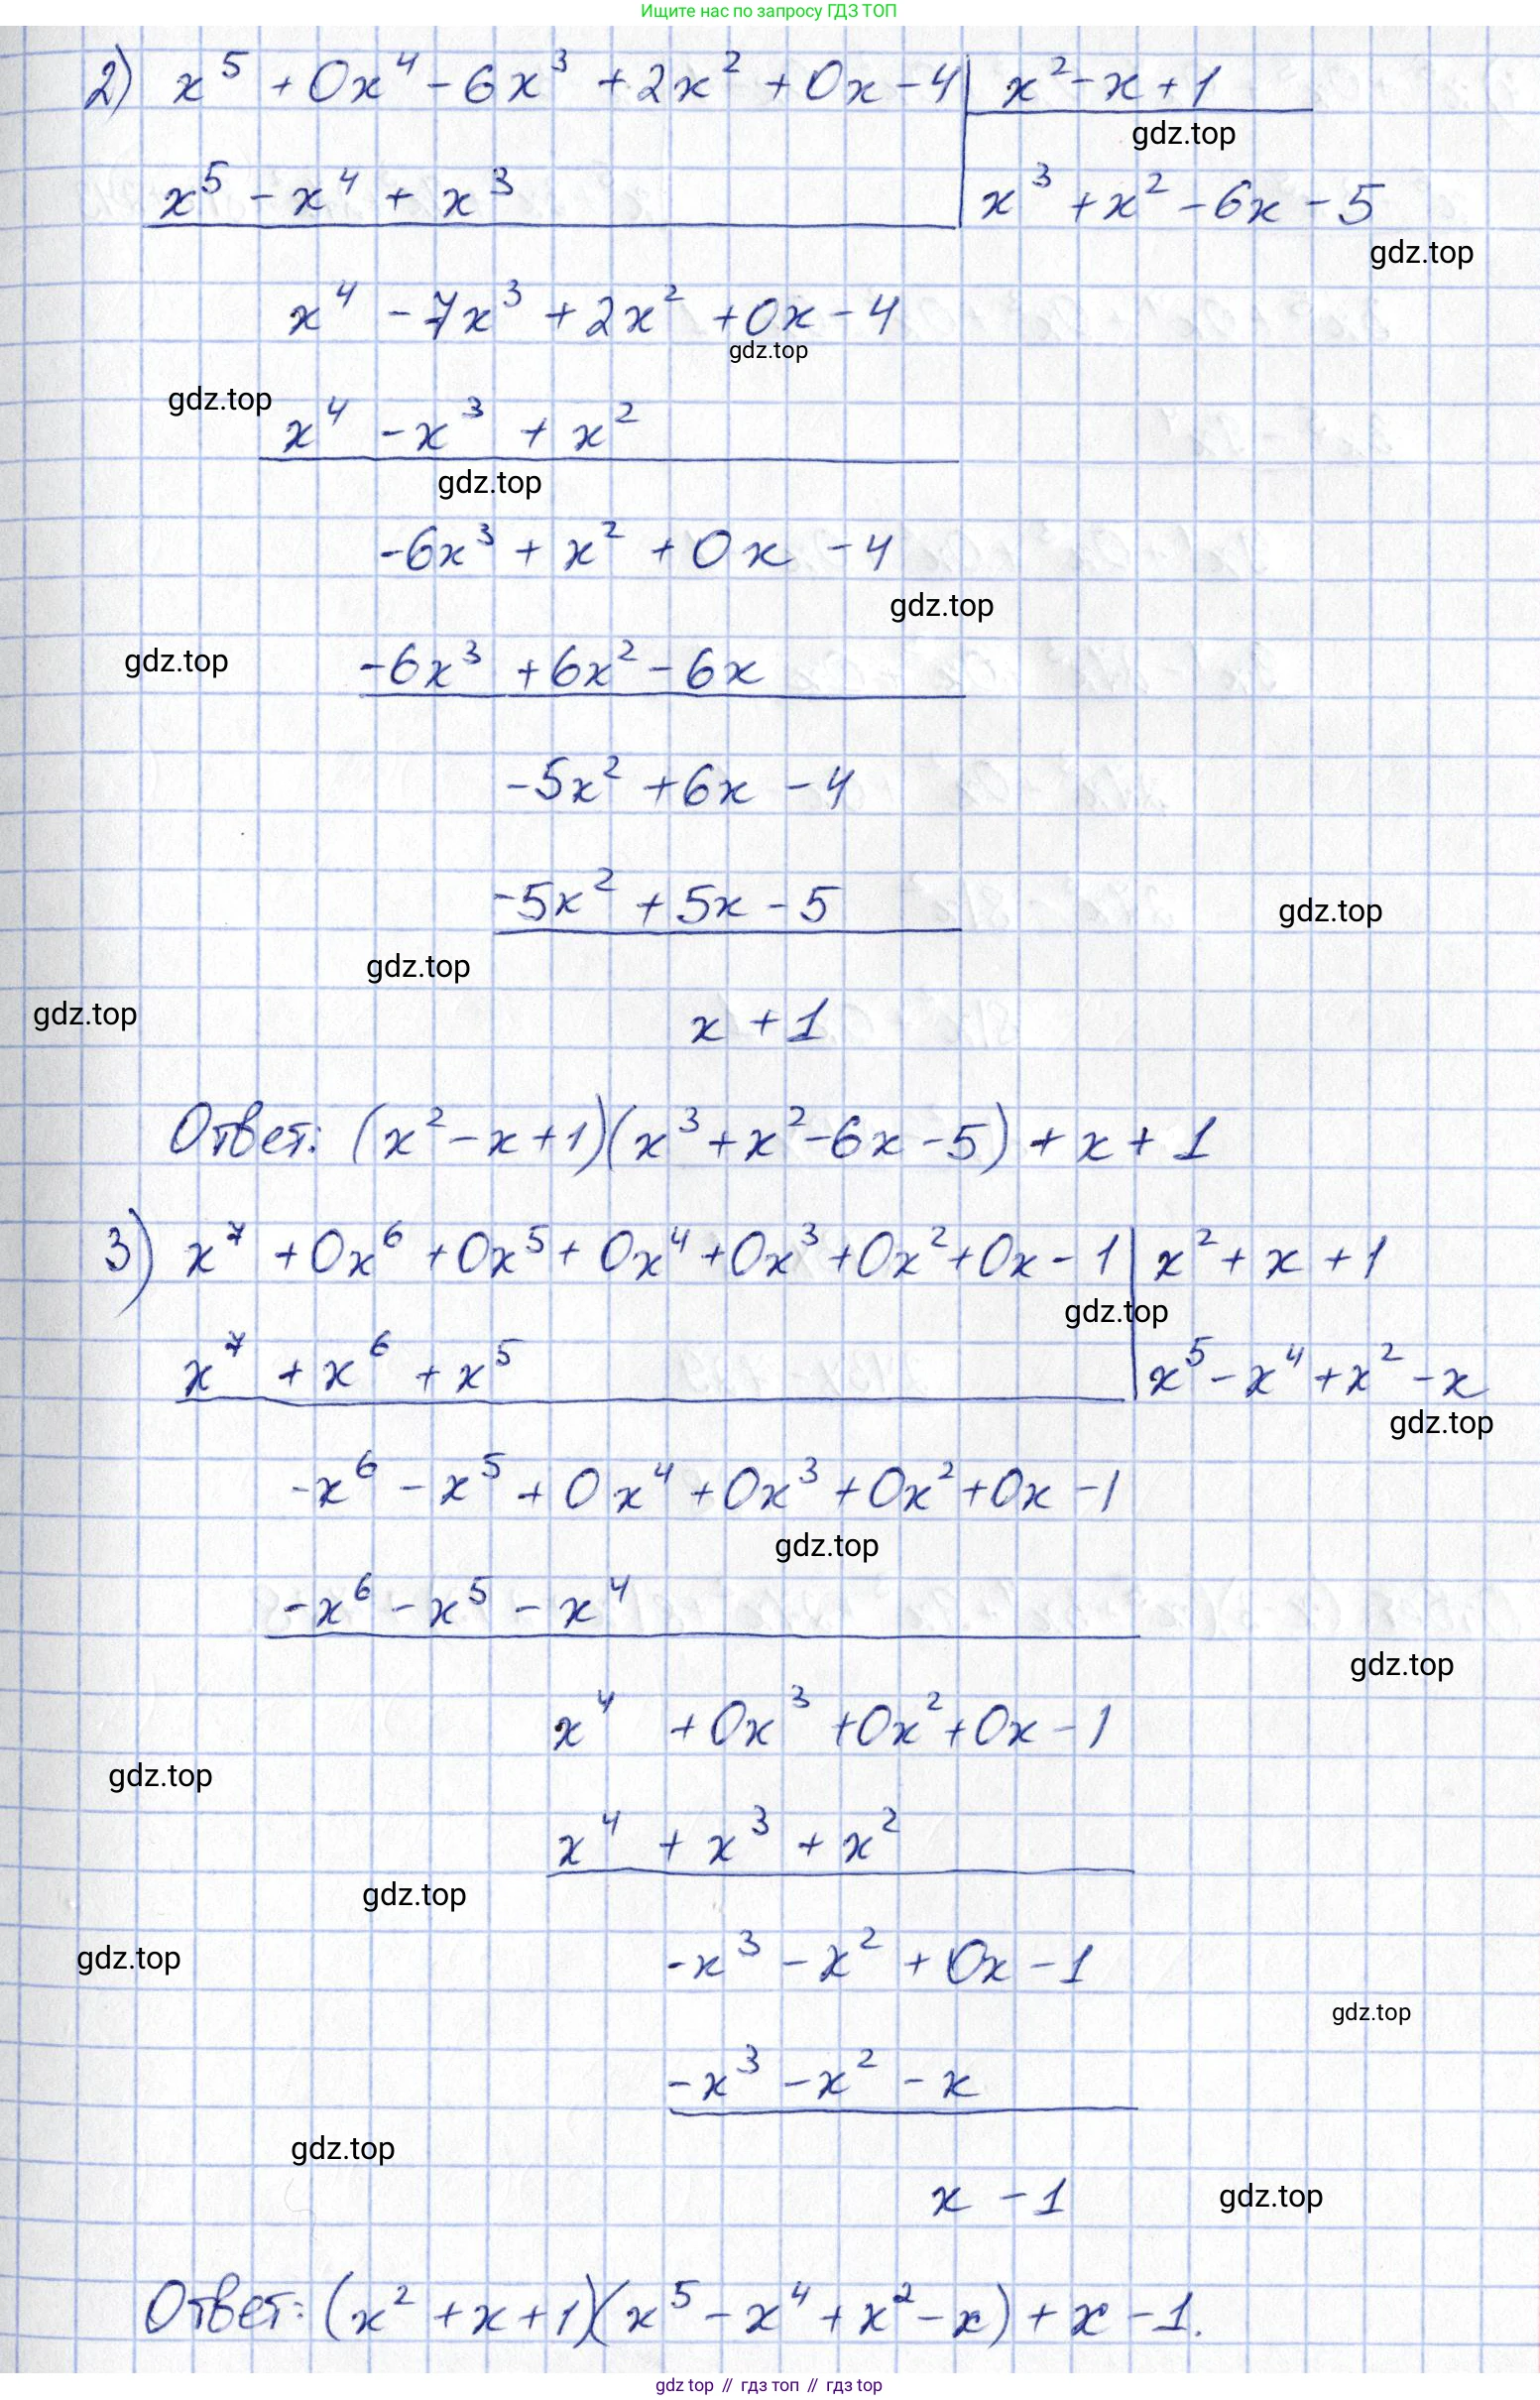 Ищите нас по запросу ГДЗ ТОП
2) x⁵ + 0x⁴ - 6x³ + 2x² + 0x - 4 | x² - x + 1
gdz.top
x⁵ - x⁴ + x³ | x³ + x² - 6x - 5
gdz.top
x⁴ - 7x³ + 2x² + 0x - 4
gdz.top
gdz.top
x⁴ - x³ + x²
gdz.top
-6x³ + x² + 0x - 4
gdz.top
gdz.top
-6x³ + 6x² - 6x
-5x² + 6x - 4
-5x² + 5x - 5
gdz.top
gdz.top
gdz.top
x + 1
Ответ: (x² - x + 1)(x³ + x² - 6x - 5) + x + 1
3) x⁷ + 0x⁶ + 0x⁵ + 0x⁴ + 0x³ + 0x² + 0x - 1 | x² + x + 1
gdz.top
x⁷ + x⁶ + x⁵ | x⁵ - x⁴ + x² - x
gdz.top
-x⁶ - x⁵ + 0x⁴ + 0x³ + 0x² + 0x - 1
gdz.top
-x⁶ - x⁵ - x⁴
gdz.top
x⁴ + 0x³ + 0x² + 0x - 1
gdz.top
x⁴ + x³ + x²
gdz.top
gdz.top
-x³ - x² + 0x - 1
gdz.top
-x³ - x² - x
gdz.top
x - 1
gdz.top
Ответ: (x² + x + 1)(x⁵ - x⁴ + x² - x) + x - 1.
gdz top // гдз топ // гдз top